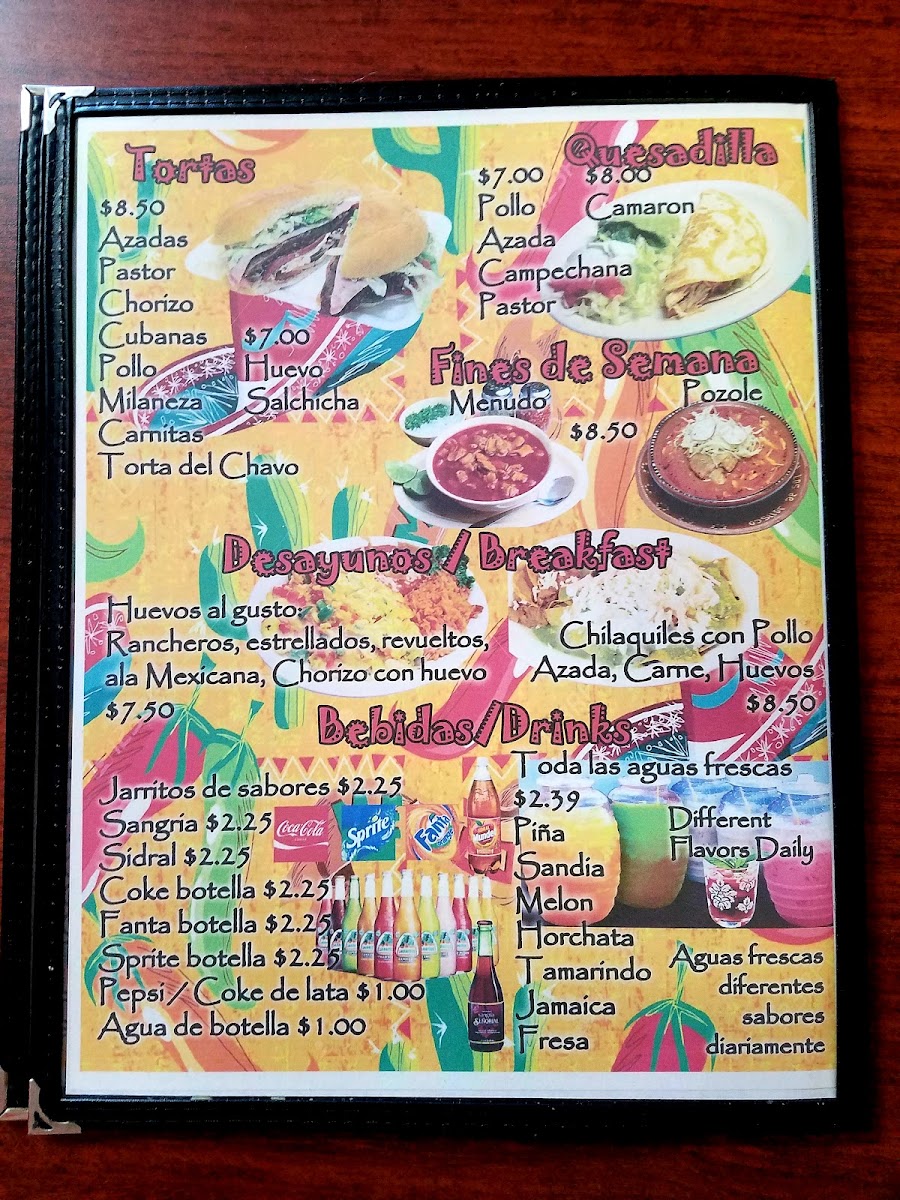 Tortas
$8.50
Azadas
Pastor
Chorizo
Cubanas
Pollo
Milaneza
Carnitas
Torta del Chavo
$7.00
Huevo
Salchicha
Quesadilla
$7.00
Pollo
Azada
Campechana
Pastor
$8.00
Camaron
Fines de Semana
Menudo
Pozole
$8.50
Desayunos / Breakfast
Huevos al gusto:
Rancheros, estrellados, revueltos,
ala Mexicana, Chorizo con huevo
$7.50
Chilaquiles con Pollo
Azada, Carne, Huevos
$8.50
Bebidas/Drinks
Jarritos de sabores $2.25
Sangria $2.25
Sidral $2.25
Coke botella $2.25
Fanta botella $2.25
Sprite botella $2.25
Pepsi / Coke de lata $1.00
Agua de botella $1.00
Coca-Cola
Sprite
Fanta
Mundet
Señorial
Toda las aguas frescas
$2.39
Piña
Sandia
Melon
Horchata
Tamarindo
Jamaica
Fresa
Different
Flavors Daily
Aguas frescas
diferentes
sabores
diariamente